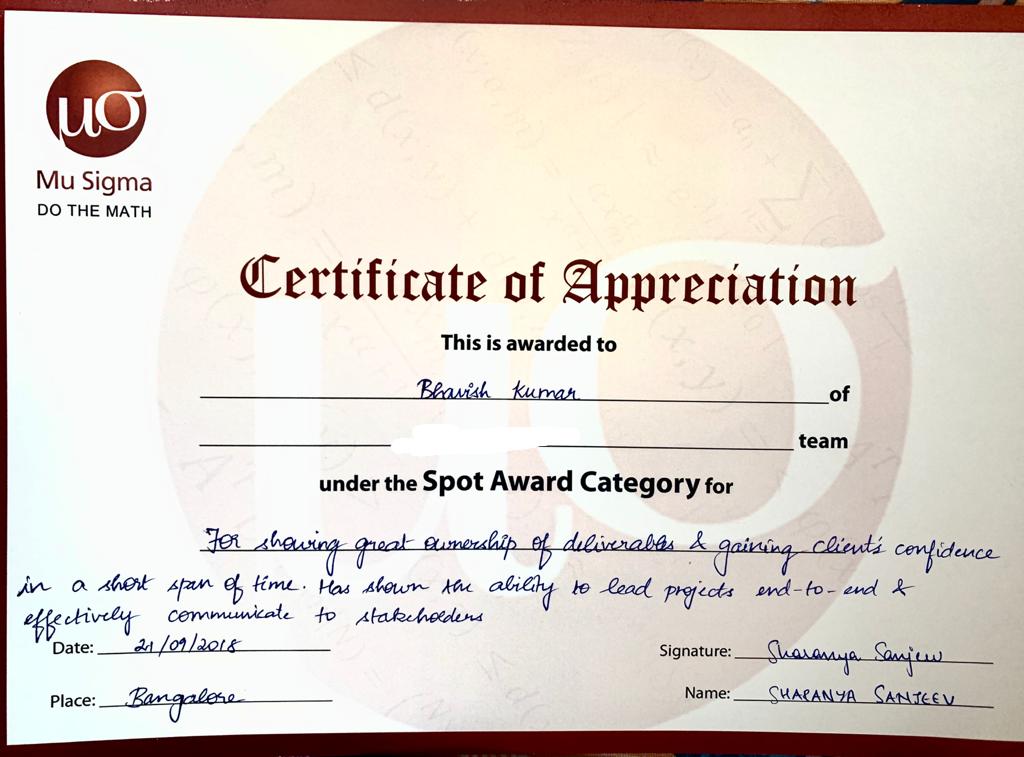 μσ
Mu Sigma
DO THE MATH
Certificate of Appreciation
This is awarded to
Bhavish Kumar of
team
under the Spot Award Category for
For showing great ownership of deliverables & gaining client's confidence
in a short span of time. Has shown the ability to lead projects end-to-end &
effectively communicate to stakeholders
Date: 21/09/2018
Signature: Sharanya Sanjeev
Place: Bangalore
Name: SHARANYA SANJEEV